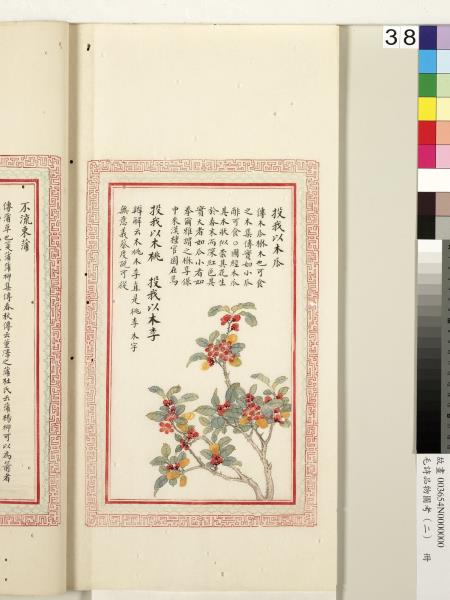 投我以木瓜
傳木瓜楙木也可食
之木集傳實如小瓜
酢可食○圖經木瓜
其木狀似柰其花生
於春末而深紅色其
實大者如瓜小者如
拳爾雅謂之楙享保
中來漢種官園在焉
投我以木桃　投我以木李
辨解云木桃木李直是桃李木字
無意義參度說可從
不流束蒲
傳蒲草也箋蒲蒲柳集傳春秋傳云董澤之蒲杜氏云蒲楊柳可以為箭者
38
故畫 003654N0000000
毛詩品物圖考（二） 冊